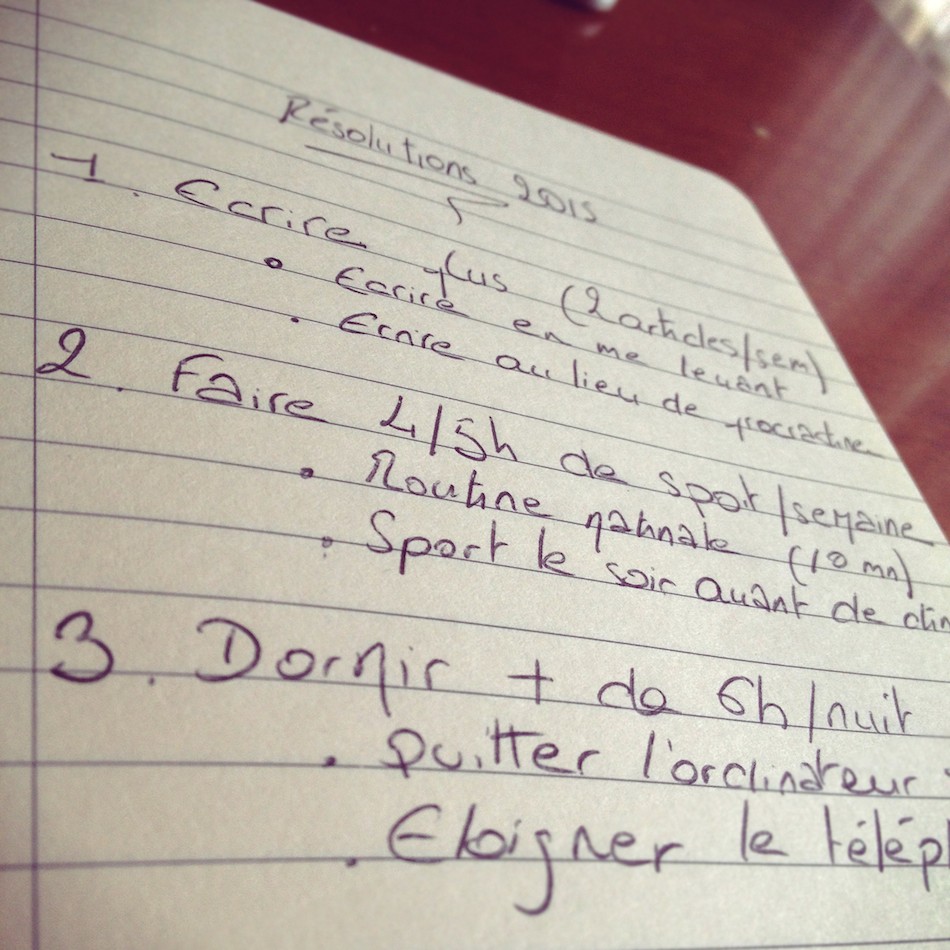 Résolutions 2015
1. Ecrire plus (2 articles/sem)
• Ecrire en me levant
• Ecrire au lieu de procrastine
2. Faire 4/5h de sport/semaine
• Routine matinale (10 mn)
• Sport le soir avant de din
3. Dormir + de 6h/nuit
• Quitter l'ordinateur
• Eloigner le télép